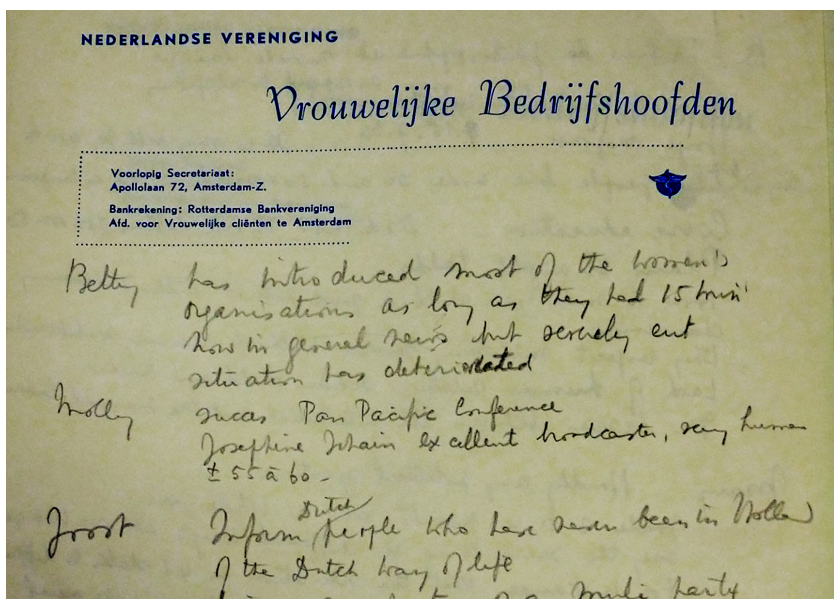 NEDERLANDSE VERENIGING
Vrouwelijke Bedrijfshoofden
Voorlopig Secretariaat:
Apollolaan 72, Amsterdam-Z.
Bankrekening: Rotterdamse Bankvereniging
Afd. voor Vrouwelijke cliënten te Amsterdam
Betty has introduced most of the women's
organisations as long as they had 15 min
now in general news but severely cut
situation has deteriorated
Molly succes Pan Pacific Conference
Josephine Schain excellent broadcaster, very human
± 55 à 60 -
Dutch
Joost Inform people who have never been in Holland
of the Dutch way of life
party